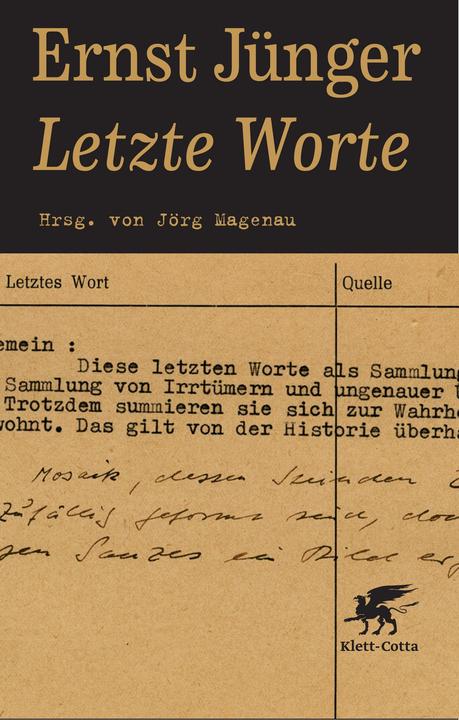 Ernst Jünger
Letzte Worte
Hrsg. von Jörg Magenau
Letztes Wort
Quelle
emein :
Diese letzten Worte als Sammlung
Sammlung von Irrtümern und ungenauer
Trotzdem summieren sie sich zur Wahrhe
wohnt. Das gilt von der Historie überha
Mosaik, dessen
Zufällig geformt sind, doch
Ganzes ein Bild
Klett-Cotta